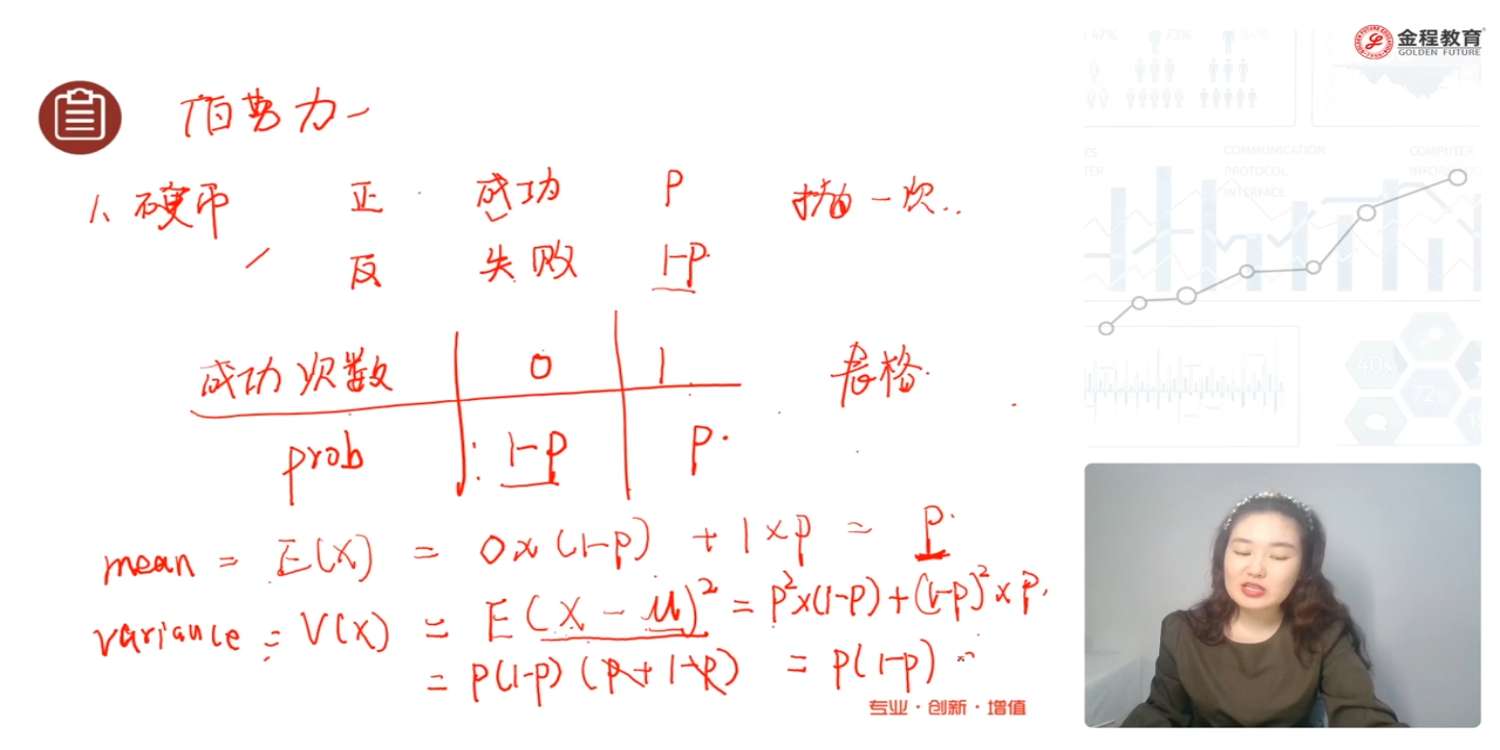 金程教育
GOLDEN FUTURE
伯努力
1、硬币 正 成功 P 抽一次..
反 失败 1-P.
成功次数 0 1 表格.
prob 1-P P.
mean = E(X) = 0×(1-P) + 1×P = P.
variance = V(X) = E(X-μ)² = P²×(1-P)+(1-P)²×P.
= P(1-P)(P+1-P) = P(1-P)
专业·创新·增值
47%
73%
COMMUNICATION
PROTOCOL
INTERFACE
COMPUTER
40%
72%